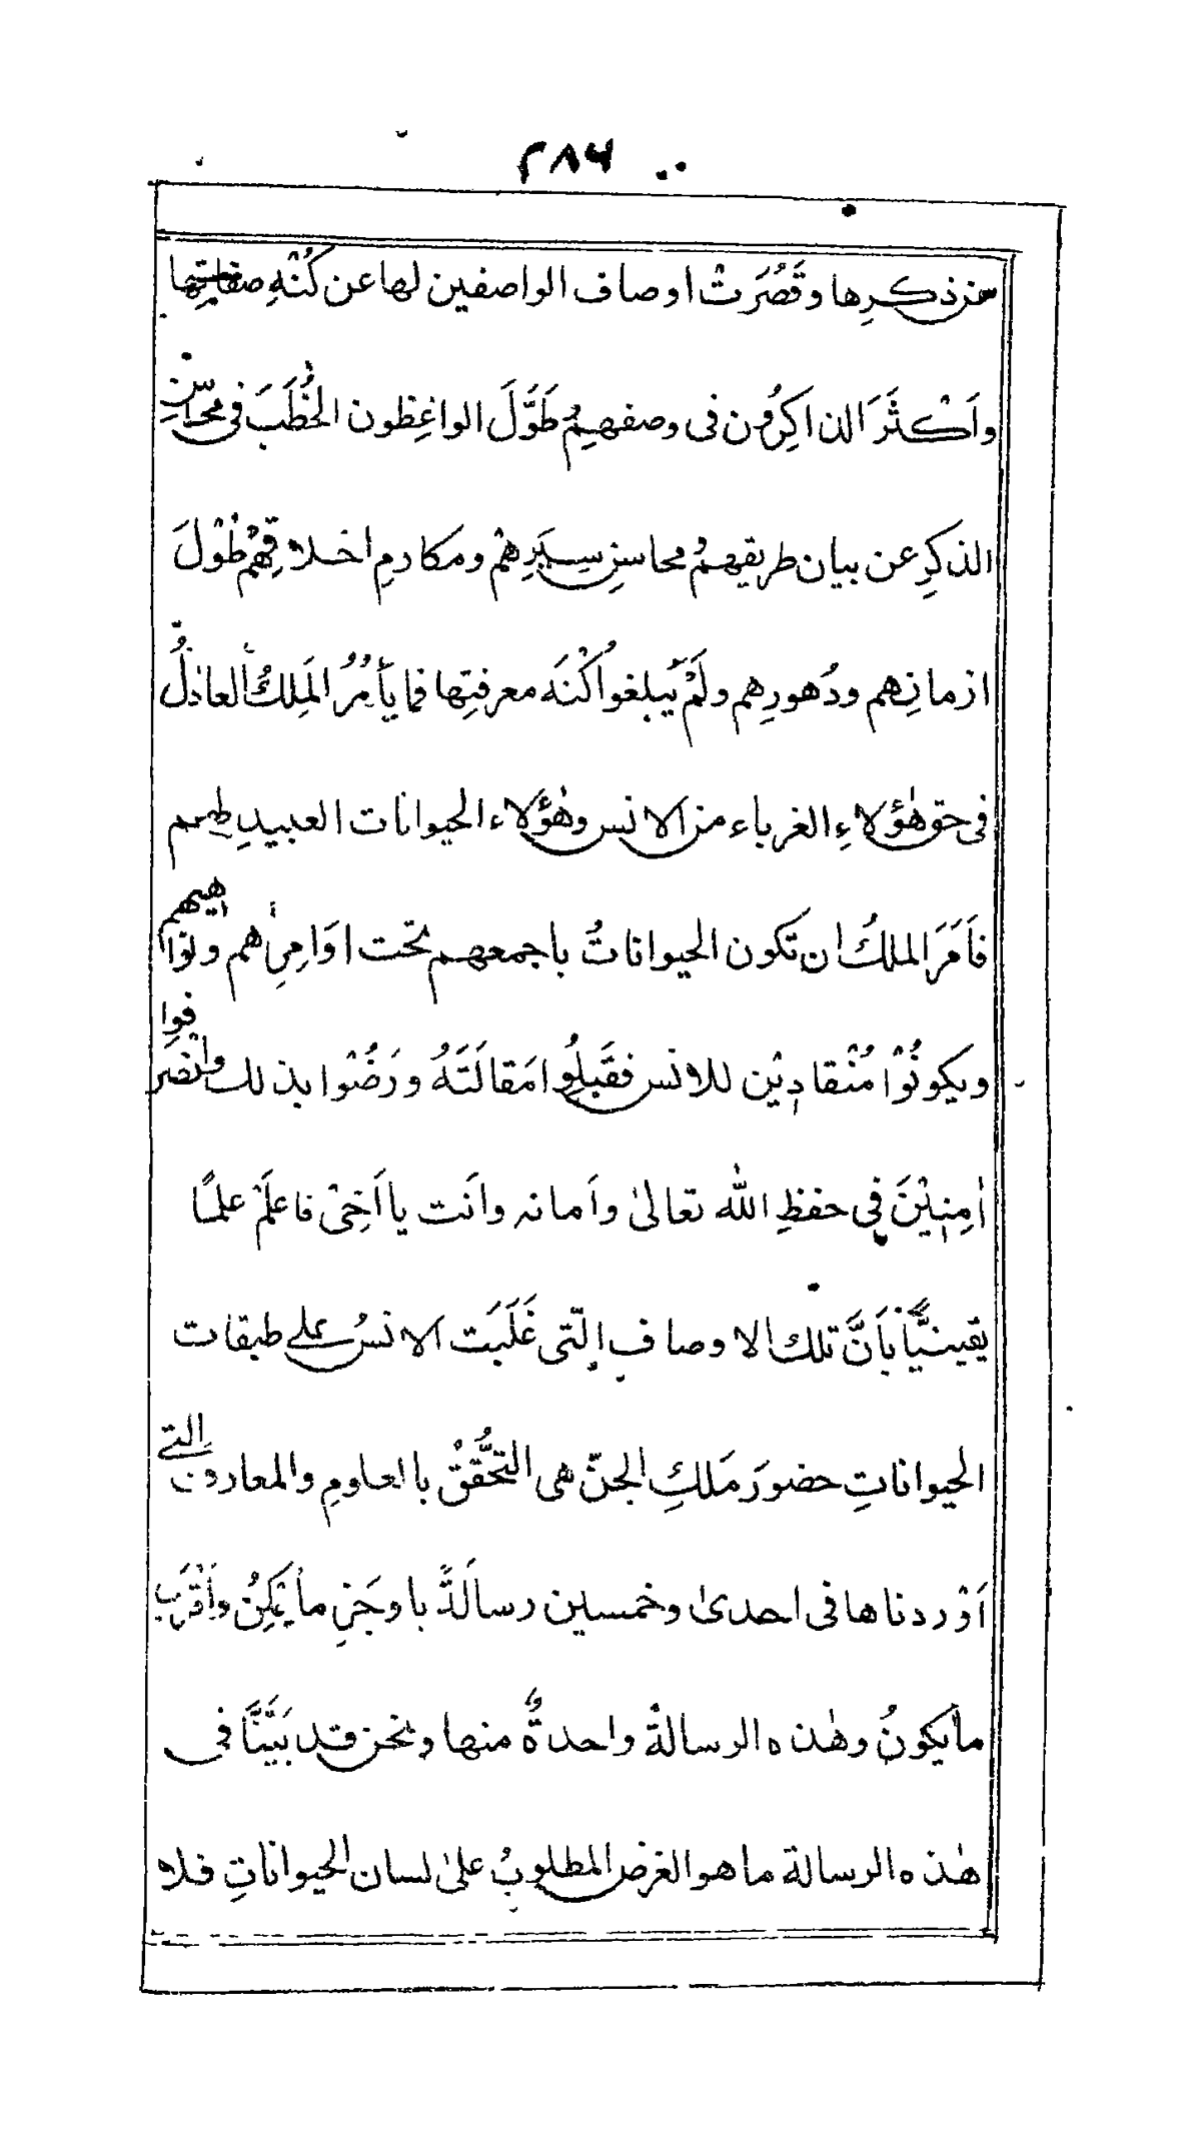 ٢٨٦
من ذكرِها وقَصُرَتْ اوصاف الواصفين لها عن كُنْهِ صفاتِها
واَكْثَرَ الذاكِرُون فى وصفهِمُ طَوَّلَ الواعِظون الخُطَبَ فى محاسِّنِ
الذكرِ عن بيان طريقهمُ محاسنِ سِيَرِهمْ ومكارمِ اخلاقِهمْ طُوْلَ
ازمانِهم ودُهورِهم ولَمْ يَبلغواُ كُنْهَ معرفتِها فما يأمُرُ المَلِكُ العادلُ
فى حق هٰؤلاءِ الغرباء من الانس وهٰؤلاء الحيوانات العبيدِ لهم
فاَمَرَ الملكُ ان تكون الحيواناتُ باجمعهم تحت اوَامِرِهم ونواهيهم
ويكونُوْا مُنْقادِيْن للانس فقَبِلُوا مَقالَتَهُ ورَضُوْا بذلك وانْصَرفوا
اٰمِنِيْنَ فى حفظِ الله تعالىٰ واَمانه واَنت يا اَخِىْ فاعلَمْ علمًا
يقينيًّا بَاَنَّ تلك الاوصافِ الّتى غَلَبَت الانسُ على طبقات
الحيواناتِ حضورَ مَلكِ الجنّ هى التحَّقُقْ بالعلومِ والمعارف التى
اَوْردناها فى احدىٰ وخمسين رسالَةً باوجَزِ ما يمْكِنُ واَقْرَبِ
ما يكونُ وهٰذه الرسالةُ واحدةٌ منها ونحن قد بَيَّنَّا فى
هٰذه الرسالة ما هو الغرض المطلوبُ علىٰ لسان الحيواناتِ فلا